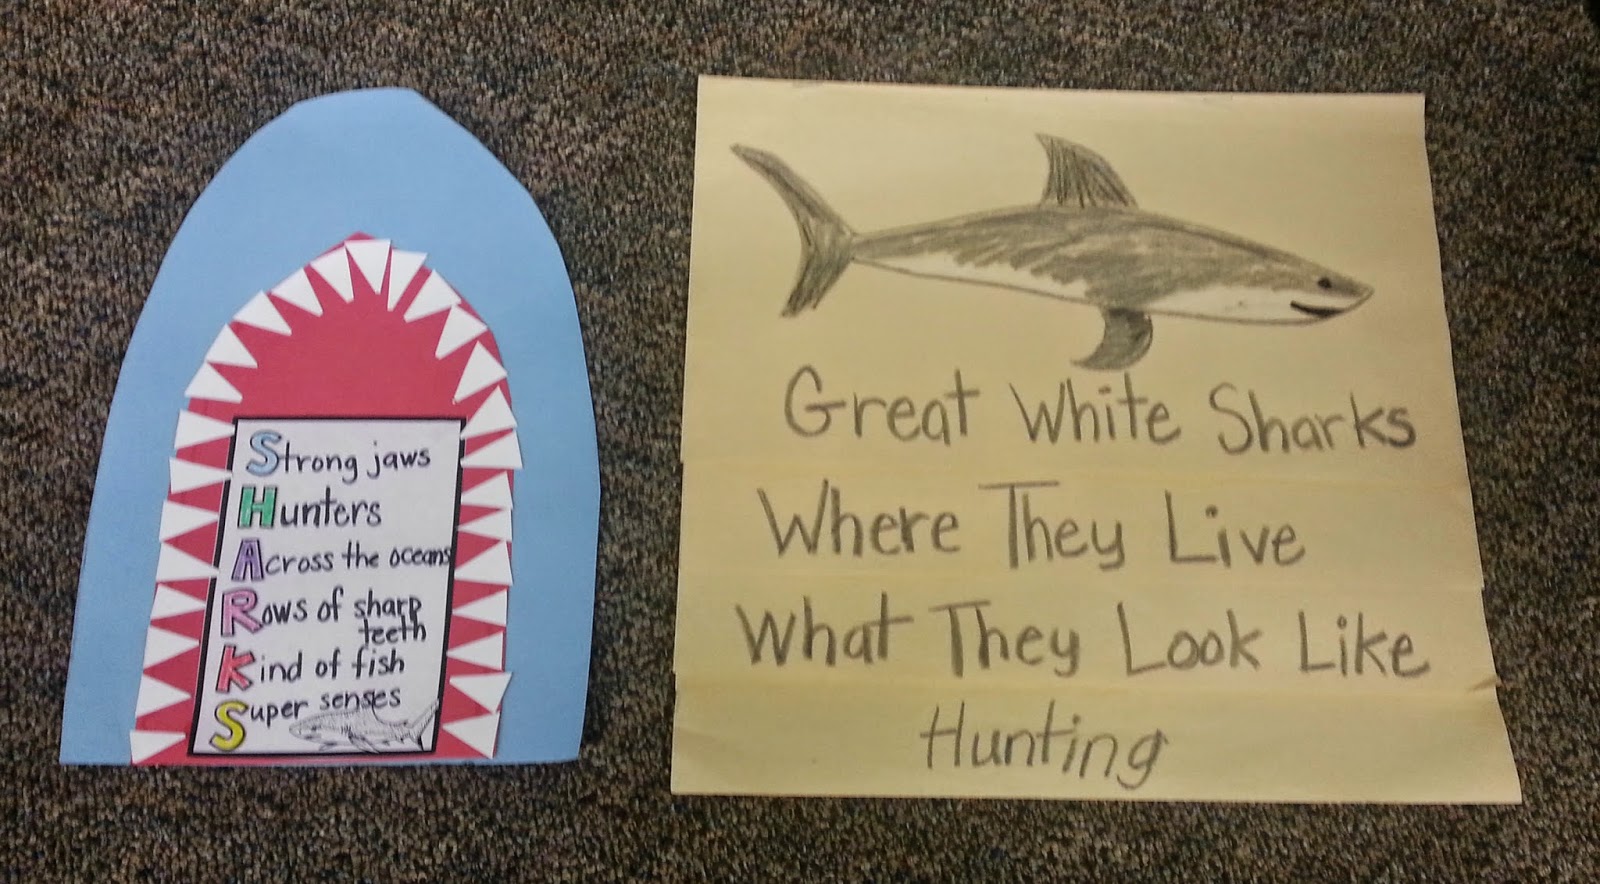 Strong jaws
Hunters
Across the oceans
Rows of sharp
teeth
Kind of fish
Super senses
Great White Sharks
Where They Live
What They Look Like
Hunting